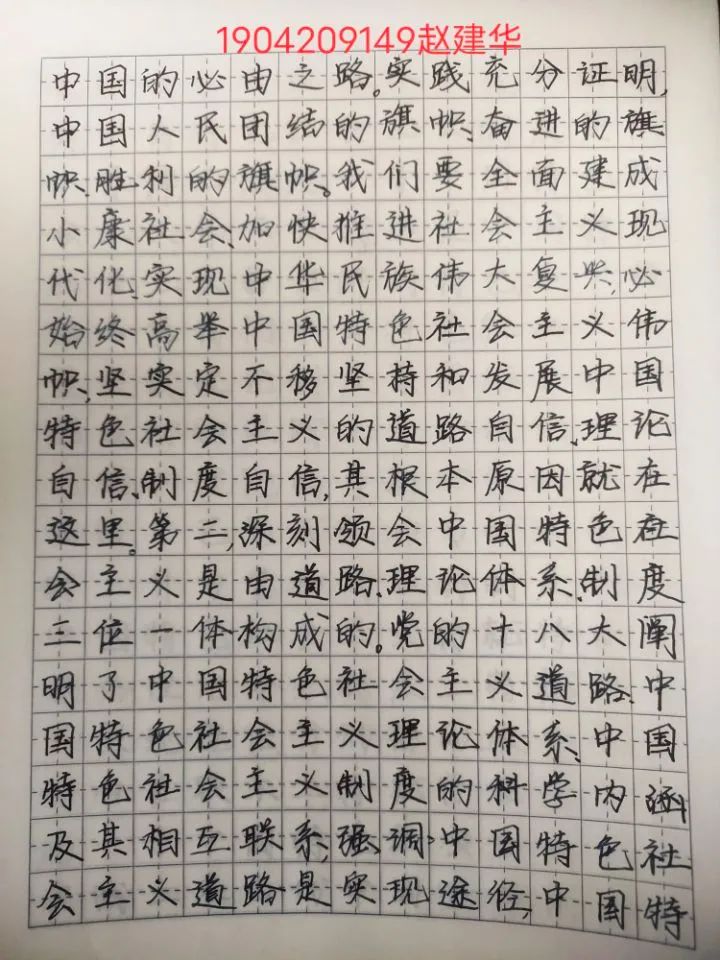 1904209149赵建华
中国的必由之路。实践充分证明,
中国人民团结的旗帜、奋进的旗
帜、胜利的旗帜。我们要全面建成
小康社会、加快推进社会主义现
代化,实现中华民族伟大复兴,必
始终高举中国特色社会主义伟
帜,坚实定不移坚持和发展中国
特色社会主义的道路自信、理论
自信、制度自信,其根本原因就在
这里。第二,深刻领会中国特色在
会主义是由道路、理论体系、制度
三位一体构成的。党的十八大阐
明了中国特色社会主义道路、中
国特色社会主义理论体系、中国
特色社会主义制度的科学内涵
及其相互联系,强调:中国特色社
会主义道路是实现途径,中国特